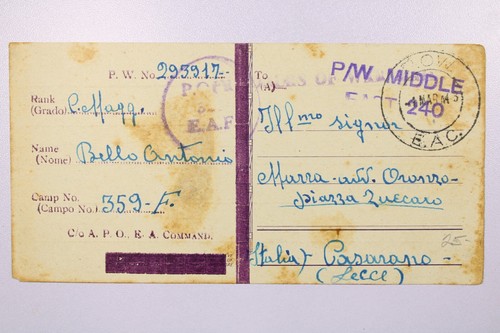 P. W. No. 293917.-
Rank
(Grado) C. Magg.
Name
(Nome) Bello Antonio
Camp No.
(Campo No.) 359-F.
C/O A. P. O., E. A. COMMAND.
To
P/W MIDDLE
EAST 240
E.A.C.
P.O.
OF
E.A.F
Ill/mo signor
Marra-avv. Oronzo-
piazza Zuccaro
25-
Italia) Casarano-
(Lecce)